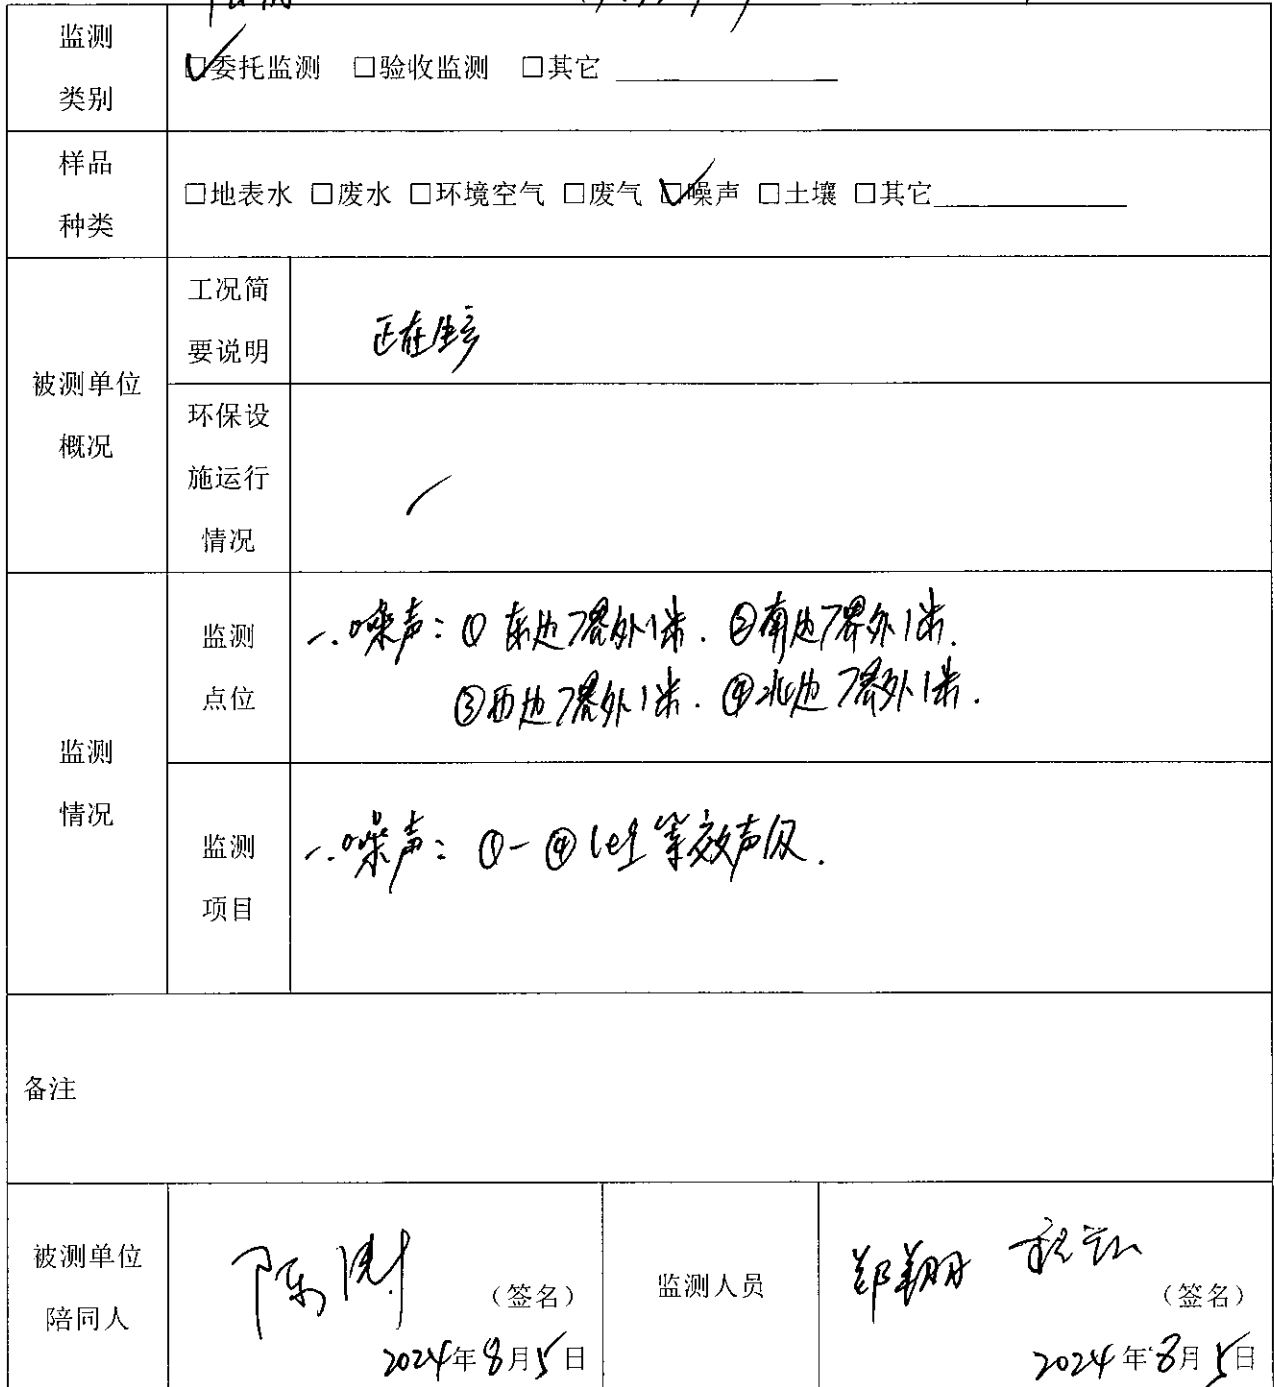 监测
类别
☑委托监测 □验收监测 □其它
样品
种类
□地表水 □废水 □环境空气 □废气 ☑噪声 □土壤 □其它
被测单位
概况
工况简
要说明
正在生产
环保设
施运行
情况
/
监测
情况
监测
点位
一.噪声：① 东边厂界外1米. ②南边厂界外1米.
③西边厂界外1米. ④北边厂界外1米.
监测
项目
一.噪声：①-④ Leq 等效声级.
备注
被测单位
陪同人
陈
（签名）
2024年8月5日
监测人员
郑翔
（签名）
2024年8月5日